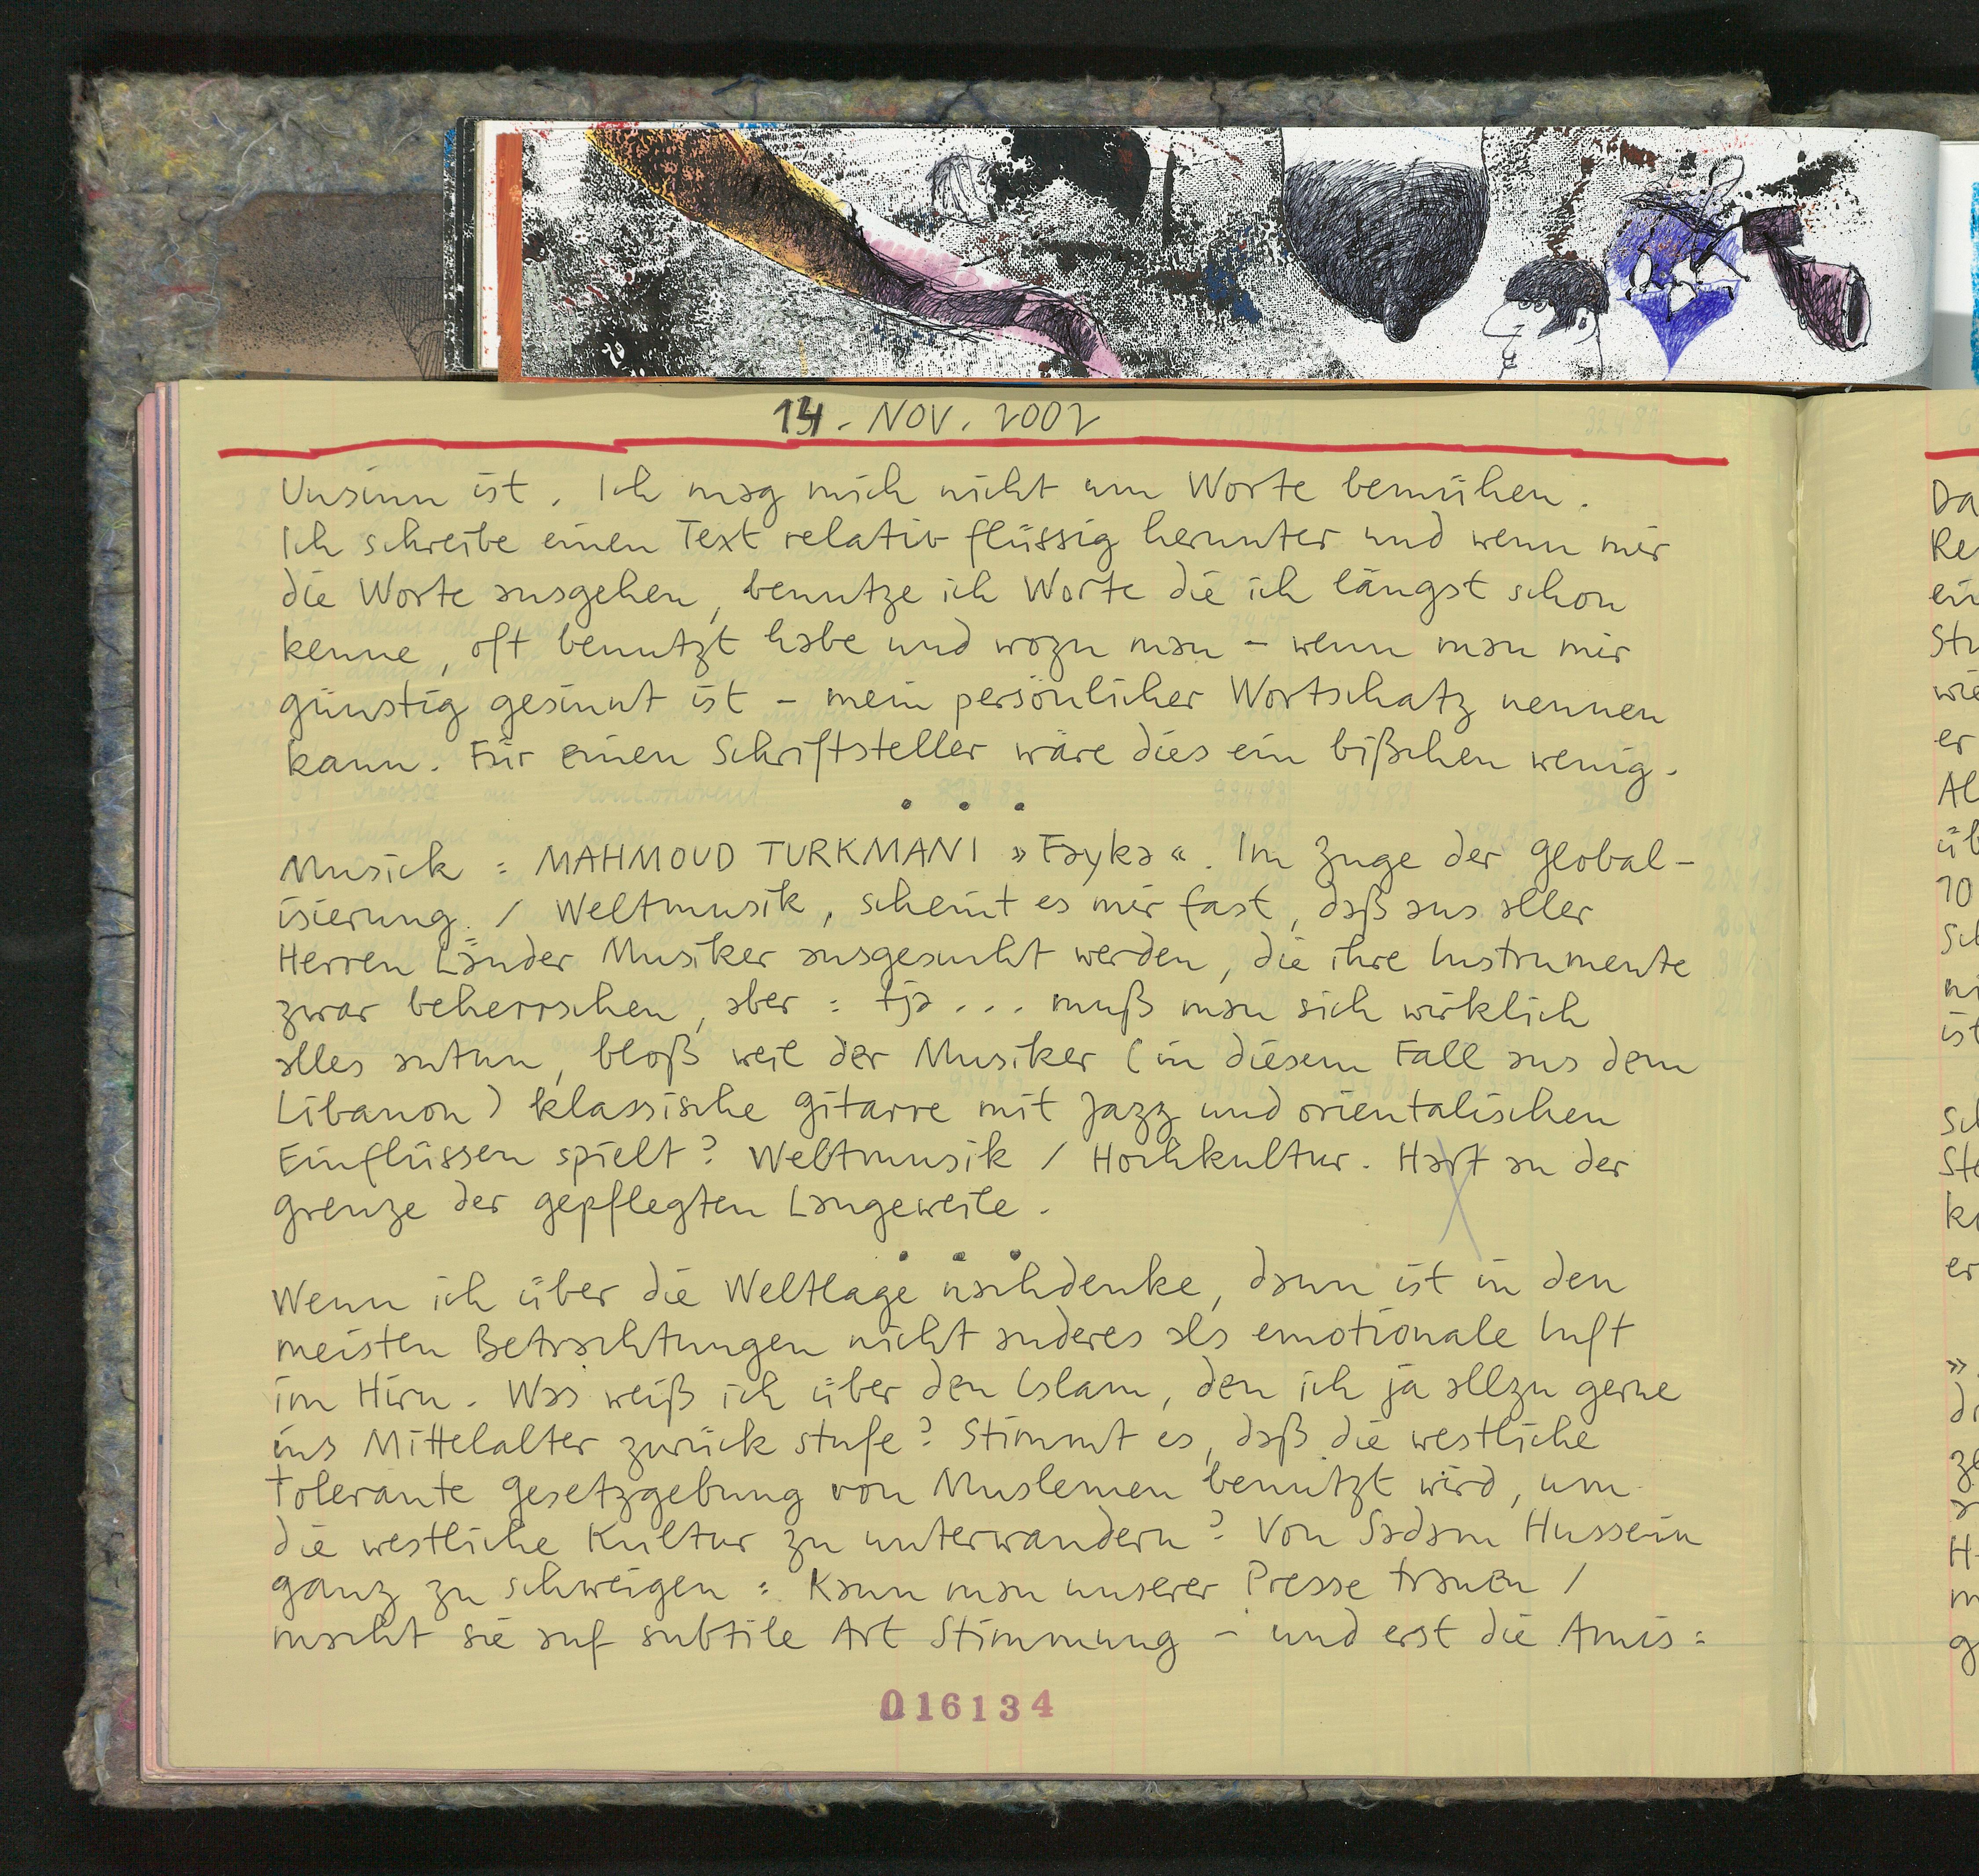 14. NOV. 2002
Unsinn ist. Ich mag mich nicht um Worte bemühen.
Ich schreibe einen Text relativ flüssig herunter und wenn mir
die Worte ausgehen, benutze ich Worte die ich längst schon
kenne, oft benutzt habe und wozu man – wenn man mir
günstig gesinnt ist – mein persönlicher Wortschatz nennen
kann. Für einen Schriftsteller wäre dies ein bißchen wenig.
. . .
Musick : MAHMOUD TURKMANI »Fayka«. Im Zuge der Global-
isierung. / Weltmusik, scheint es mir fast, daß aus aller
Herren Länder Musiker ausgesucht werden, die ihre Instrumente
zwar beherrschen, aber : tja ... muß man sich wirklich
alles antun, bloß weil der Musiker (in diesem Fall aus dem
Libanon) klassische Gitarre mit Jazz und orientalischen
Einflüssen spielt? Weltmusik / Hochkultur. Hart an der
Grenze der gepflegten Langeweile.
. . .
Wenn ich über die Weltlage nachdenke, dann ist in den
meisten Betrachtungen nicht anderes als emotionale Luft
im Hirn. Was weiß ich über den Islam, den ich ja allzu gerne
ins Mittelalter zurück stufe? Stimmt es, daß die westliche
tolerante Gesetzgebung von Muslemen benützt wird, um
die westliche Kultur zu unterwandern? Von Sadam Hussein
ganz zu schweigen : Kann man unserer Presse trauen /
macht sie auf subtile Art Stimmung – und erst die Amis :
016134
Da
ein
wie
er
10
ist
er